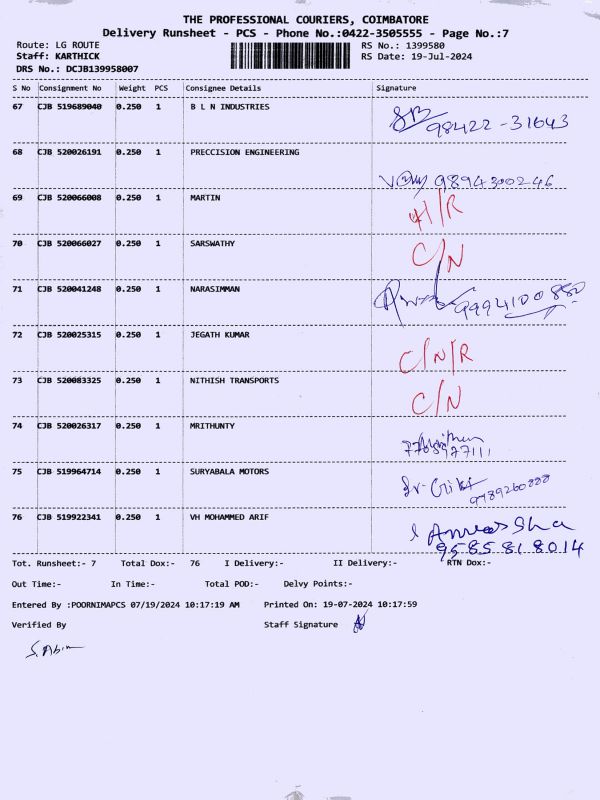 THE PROFESSIONAL COURIERS, COIMBATORE
Delivery Runsheet - PCS - Phone No.:0422-3505555 - Page No.:7
Route: LG ROUTE RS No.: 1399580
Staff: KARTHICK RS Date: 19-Jul-2024
DRS No.: DCJB139958007
S No Consignment No Weight PCS Consignee Details Signature
67 CJB 519689040 0.250 1 B L N INDUSTRIES
98422-31643
68 CJB 520026191 0.250 1 PRECCISION ENGINEERING
9894300246
69 CJB 520066008 0.250 1 MARTIN
70 CJB 520066027 0.250 1 SARSWATHY C/N
71 CJB 520041248 0.250 1 NARASIMMAN
9994100880
72 CJB 520025315 0.250 1 JEGATH KUMAR C/N/R
73 CJB 520083325 0.250 1 NITHISH TRANSPORTS C/N
74 CJB 520026317 0.250 1 MRITHUNTY
75 CJB 519964714 0.250 1 SURYABALA MOTORS
76 CJB 519922341 0.250 1 VH MOHAMMED ARIF
9585818014
Tot. Runsheet:- 7 Total Dox:- 76 I Delivery:- II Delivery:- RTN Dox:-
Out Time:- In Time:- Total POD:- Delvy Points:-
Entered By :POORNIMAPCS 07/19/2024 10:17:19 AM Printed On: 19-07-2024 10:17:59
Verified By Staff Signature